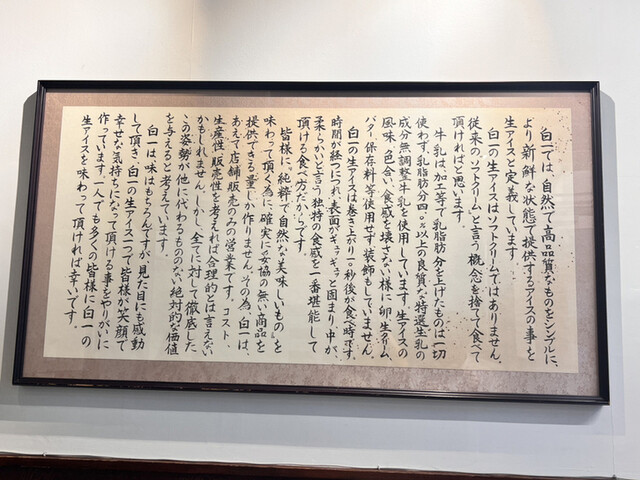 白一では、自然で高品質なものをシンプルに、
より新鮮な状態で提供するアイスの事を
生アイスと定義しています。
白一の生アイスはソフトクリームではありません。
従来の「ソフトクリーム」と言う概念を捨てて食べて
頂ければと思います。
牛乳は加工等で乳脂肪分を上げたものは一切
使わず、乳脂肪分四・〇%以上の良質な特選生乳の
成分無調整牛乳を使用しています。生アイスの
風味、色合い、食感を壊さない様に卵、生クリーム、
バター、保存料等使用せず、装飾もしていません。
白一の生アイスは巻き上がり一〇秒後が食べ時です。
時間が経つにつれ表面がギュギュッと固まり中が、
柔らかいと言う独特の食感を一番堪能して
頂ける食べ方だからです。
皆様に、純粋で自然な美味しいものを
味わって頂く為に、確実に妥協の無い商品を
提供できる量しか作りません。その為、白一は、
あえて店舗販売のみの営業です。コスト、
生産性、販売性を考えれば合理的とは言えない
かもしれません。しかし、全てに対して徹底した
この姿勢が他に代わるもののない絶対的な価値
を与えると考えています。
白一は、味はもちろんですが、見た目にも感動
して頂き、白一の生アイス一つで皆様が笑顔で
幸せな気持ちになって頂ける事をやりがいに
作っています。一人でも多くの皆様に白一の
生アイスを味わって頂ければ幸いです。